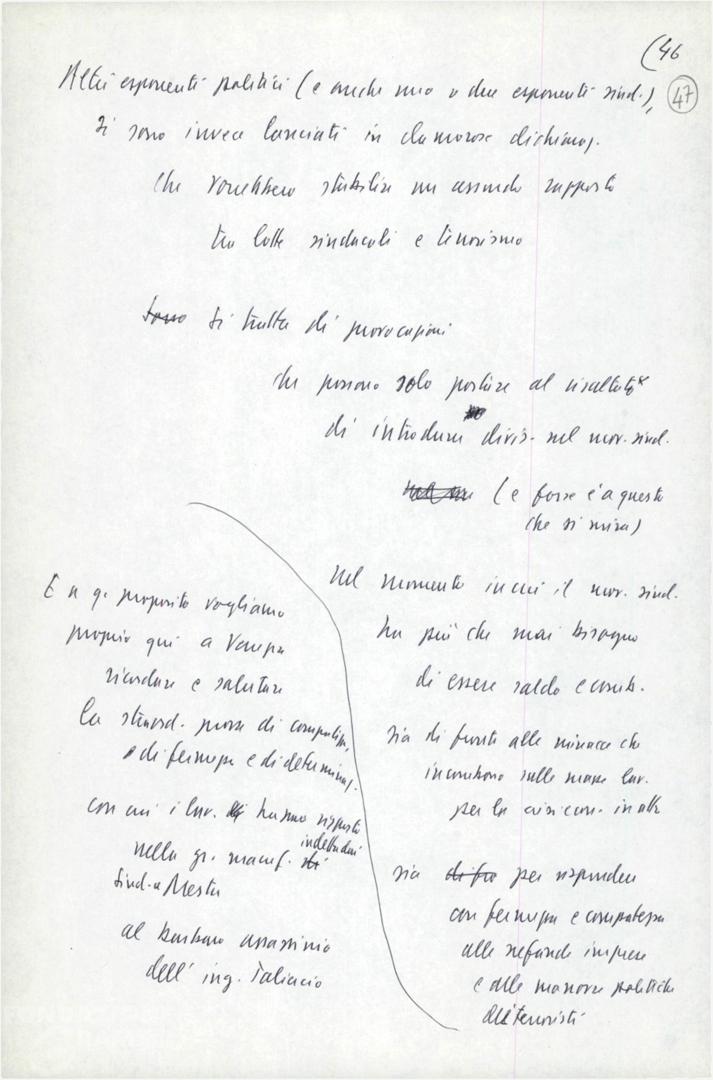 (46
47
Altri esponenti politici (e anche uno o due esponenti sind.),
si sono invece lanciati in clamorose dichiaraz.
che vorrebbero stabilire un assurdo rapporto
tra lotte sindacali e terrorismo
Sono Si tratta di provocazioni
che possono solo portare al risultato
di introdurre divis. nel mov. sind.
(e forse è a questo
che si mira)
nel momento in cui il mov. sind.
ha più che mai bisogno
di essere saldo e comb.
sia di fronte alle minacce che
incombono sulle masse lav.
per la crisi econ. in atto
sia per rispondere
con fermezza e compattezza
alle nefande imprese
e alle manovre politiche
dei terroristi
E a q. proposito vogliamo
proprio qui a Venezia
ricordare e salutare
la straord. prova di compattezza,
e di fermezza e di determinaz.
con cui i lav. hanno risposto
nella gr. manif. indetta dai
sind. a Mestre
al barbaro assassinio
dell' ing. Taliercio